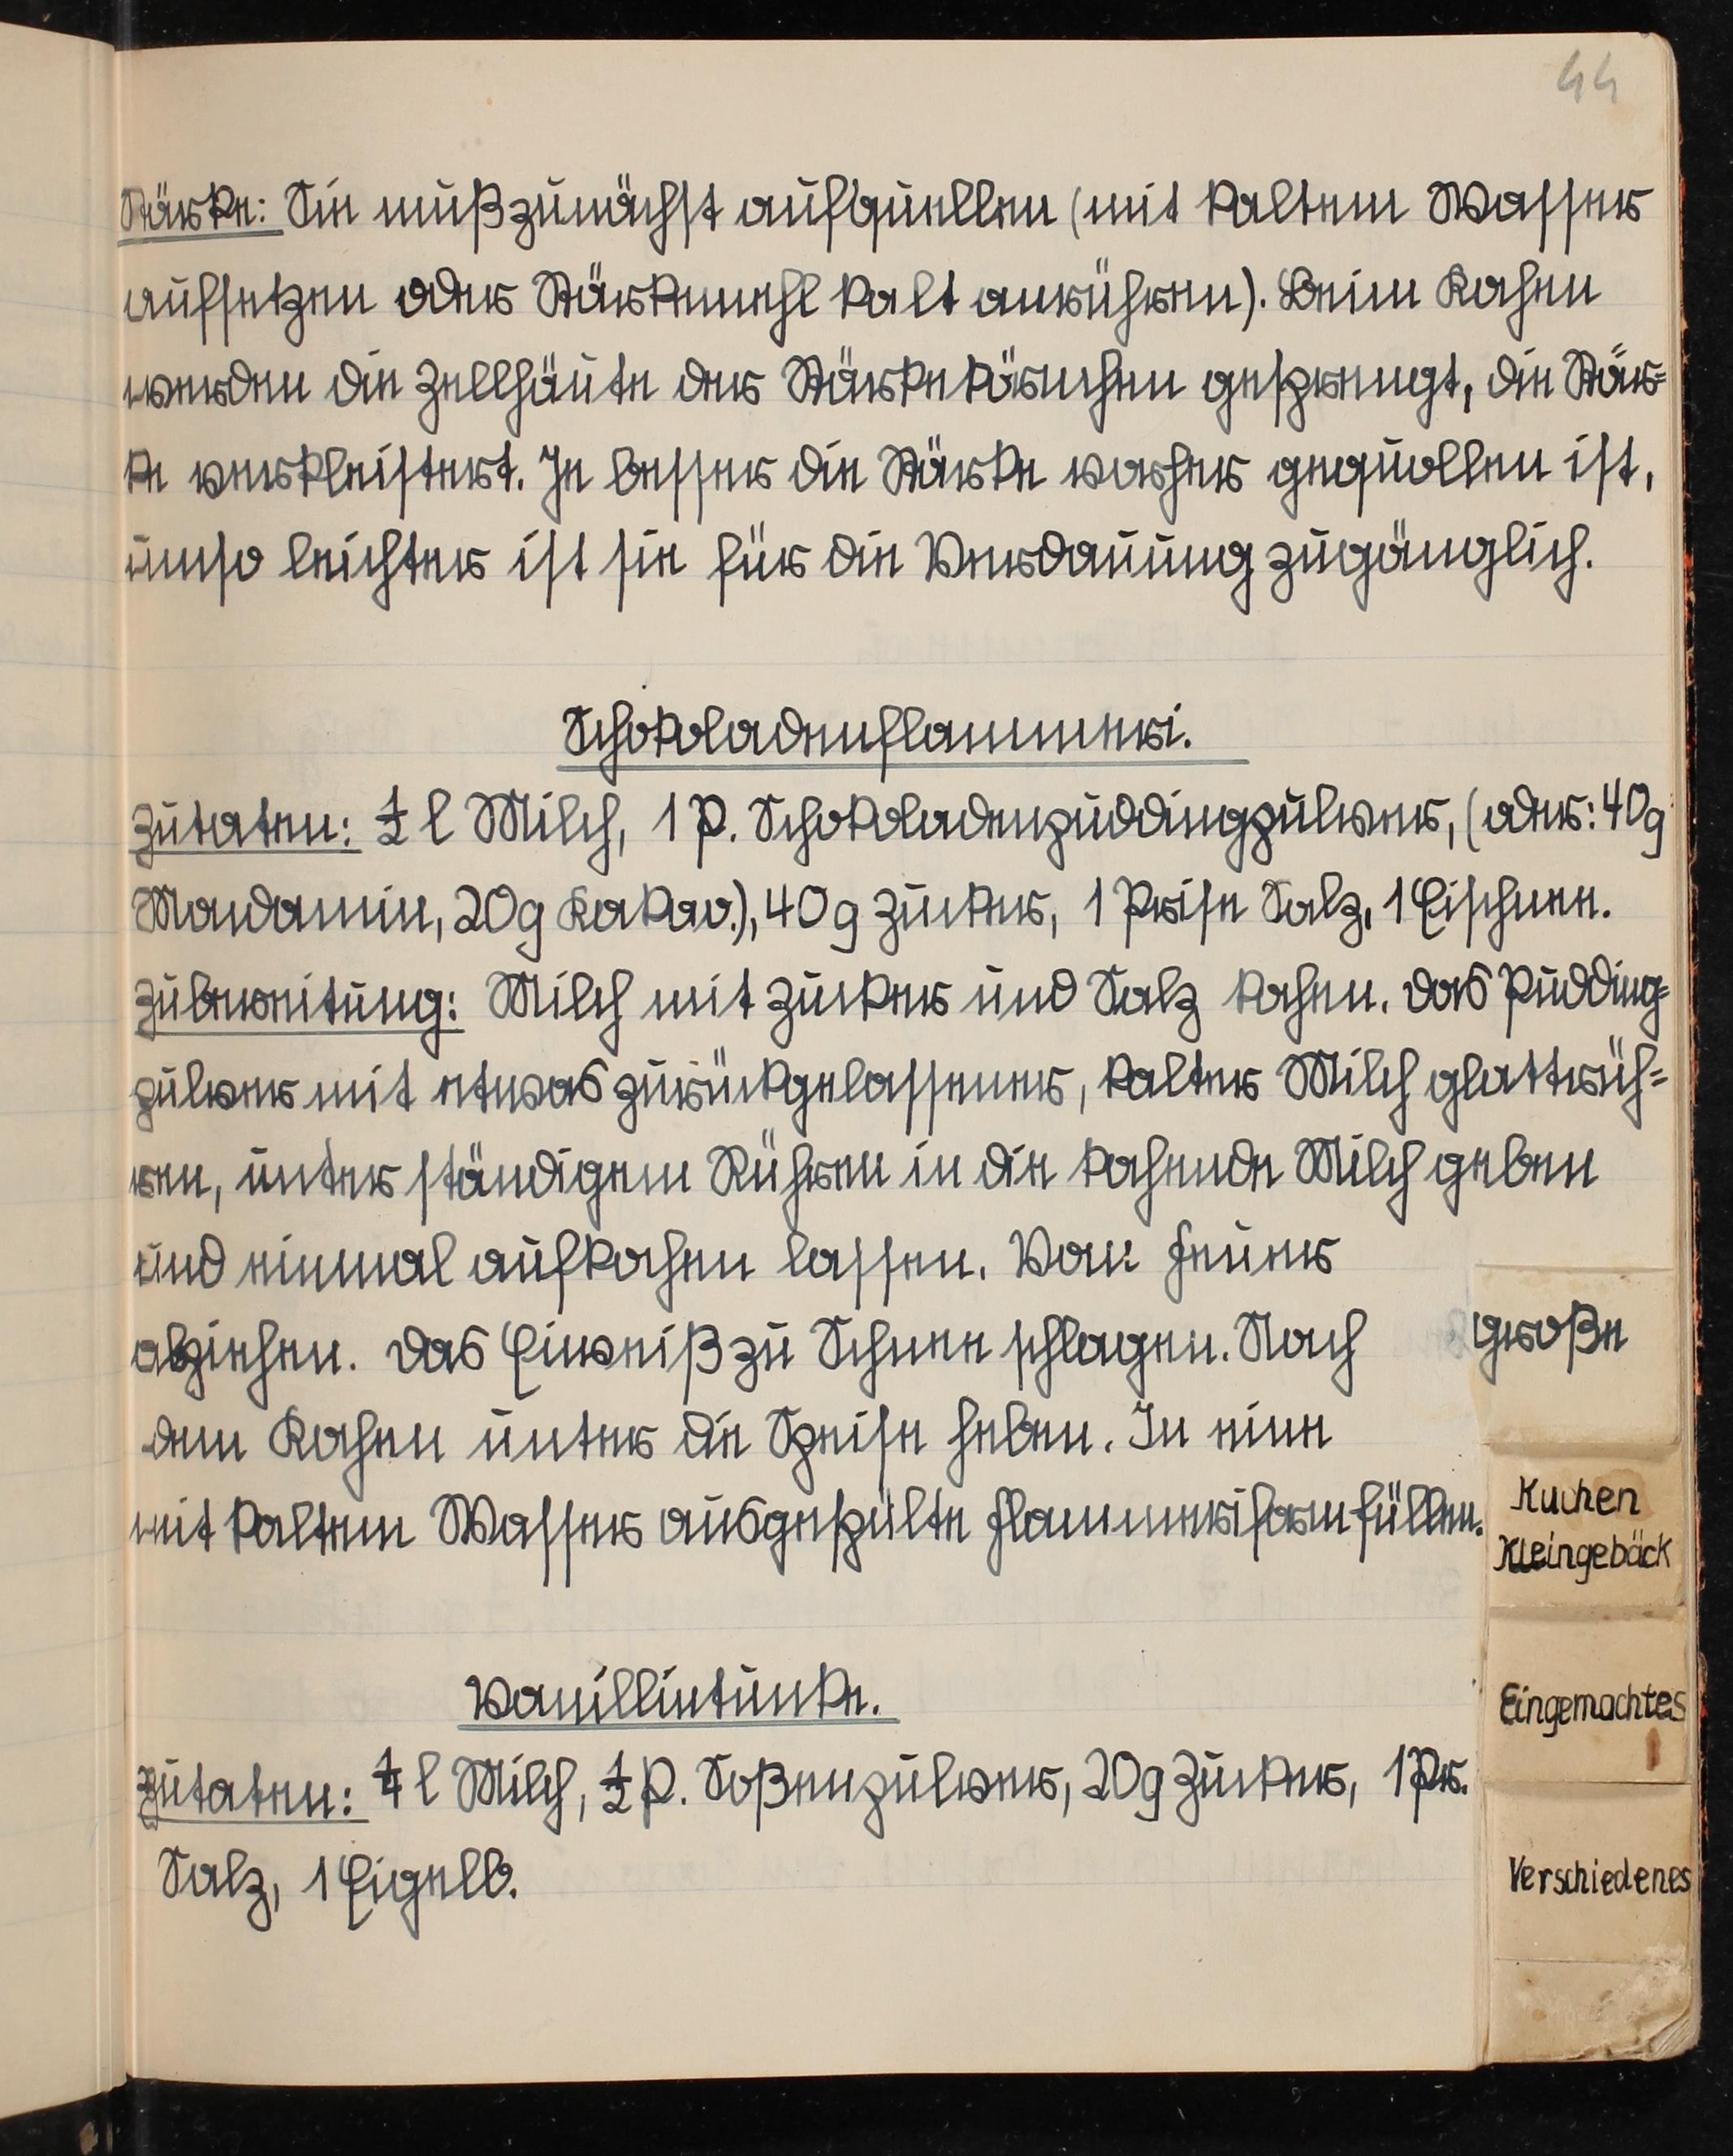 44
Stärke: Sie muß zunächst aufquellen (mit kaltem Wasser
aufsetzen oder Stärkemehl kalt anrühren). Beim Kochen
werden die Zellhäute der Stärkekörnchen gesprengt, die Stär=
ke verkleistert. Je besser die Stärke vorher gequollen ist,
umso leichter ist sie für die Verdauung zugänglich.
Schokoladenflammeri.
Zutaten: ½ l Milch, 1 P. Schokoladenpuddingpulver, (oder: 40g
Mondamin, 20g Kakao.), 40g Zucker, 1 Prise Salz, 1 Eischnee.
Zubereitung: Milch mit Zucker und Salz kochen. Das Pudding=
pulver mit etwas zurückgelassener, kalter Milch glattrüh=
ren, unter ständigem Rühren in die kochende Milch geben
und einmal aufkochen lassen. Vom Feuer
abziehen. Das Eiweiß zu Schnee schlagen. Nach
dem Kochen unter die Speise heben. In eine
mit kaltem Wasser ausgespülte Flammeriform füllen.
Vanillintunke.
Zutaten: ¼ l Milch, ½ P. Soßenpulver, 20g Zucker, 1 Pr.
Salz, 1 Eigelb.
große
Kuchen
Kleingebäck
Eingemachtes
Verschiedenes